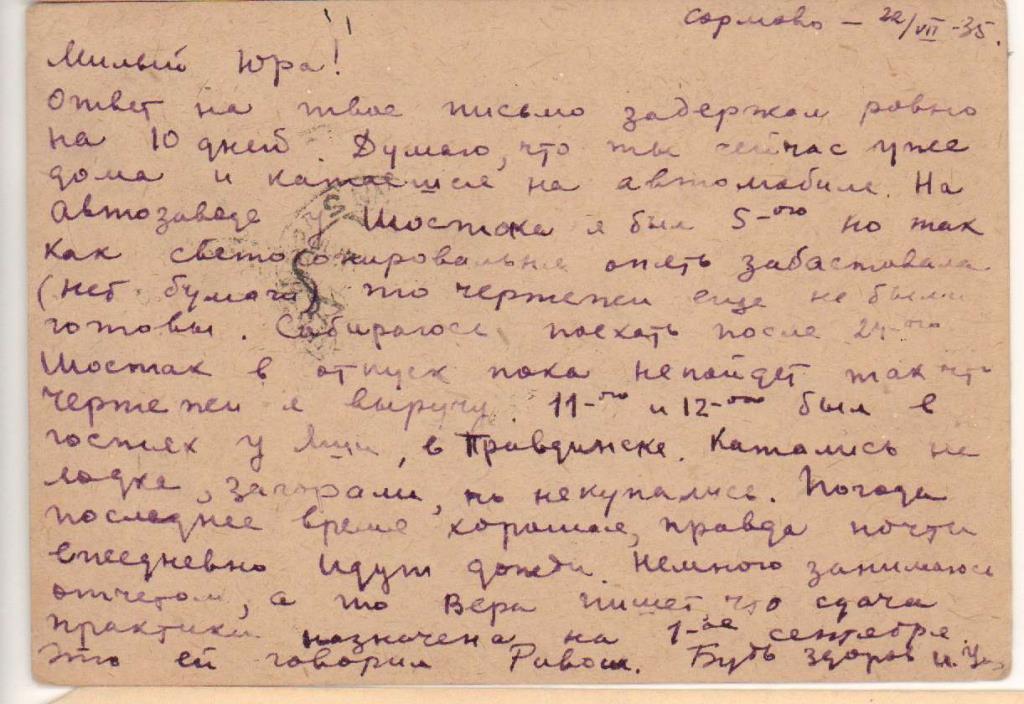 Сормово – 22/VII-35.
Милый Юра!
Ответ на твое письмо задержал ровно
на 10 дней. Думаю, что ты сейчас уже
дома и катаешься на автомобиле. На
Автозаводе у Шостака я был 5-ого но так
как светокопировальня опять забастовала
(нет бумаги) то чертежи еще не были
готовы. Собираюсь поехать после 24-ого
Шостак в отпуск пока непойдет так что
чертежи я выручу. 11-ого и 12-ого был в
гостях у , в Правдинске. Катались на
лодке, загорали, но некупались. Погода
последнее время хорошая, правда почти
ежедневно идут дожди. Немного занимаюсь
отчетом, а то Вера пишет что сдача
практики назначена на 1-ое сентября.
Это ей говорил . Будь здоров